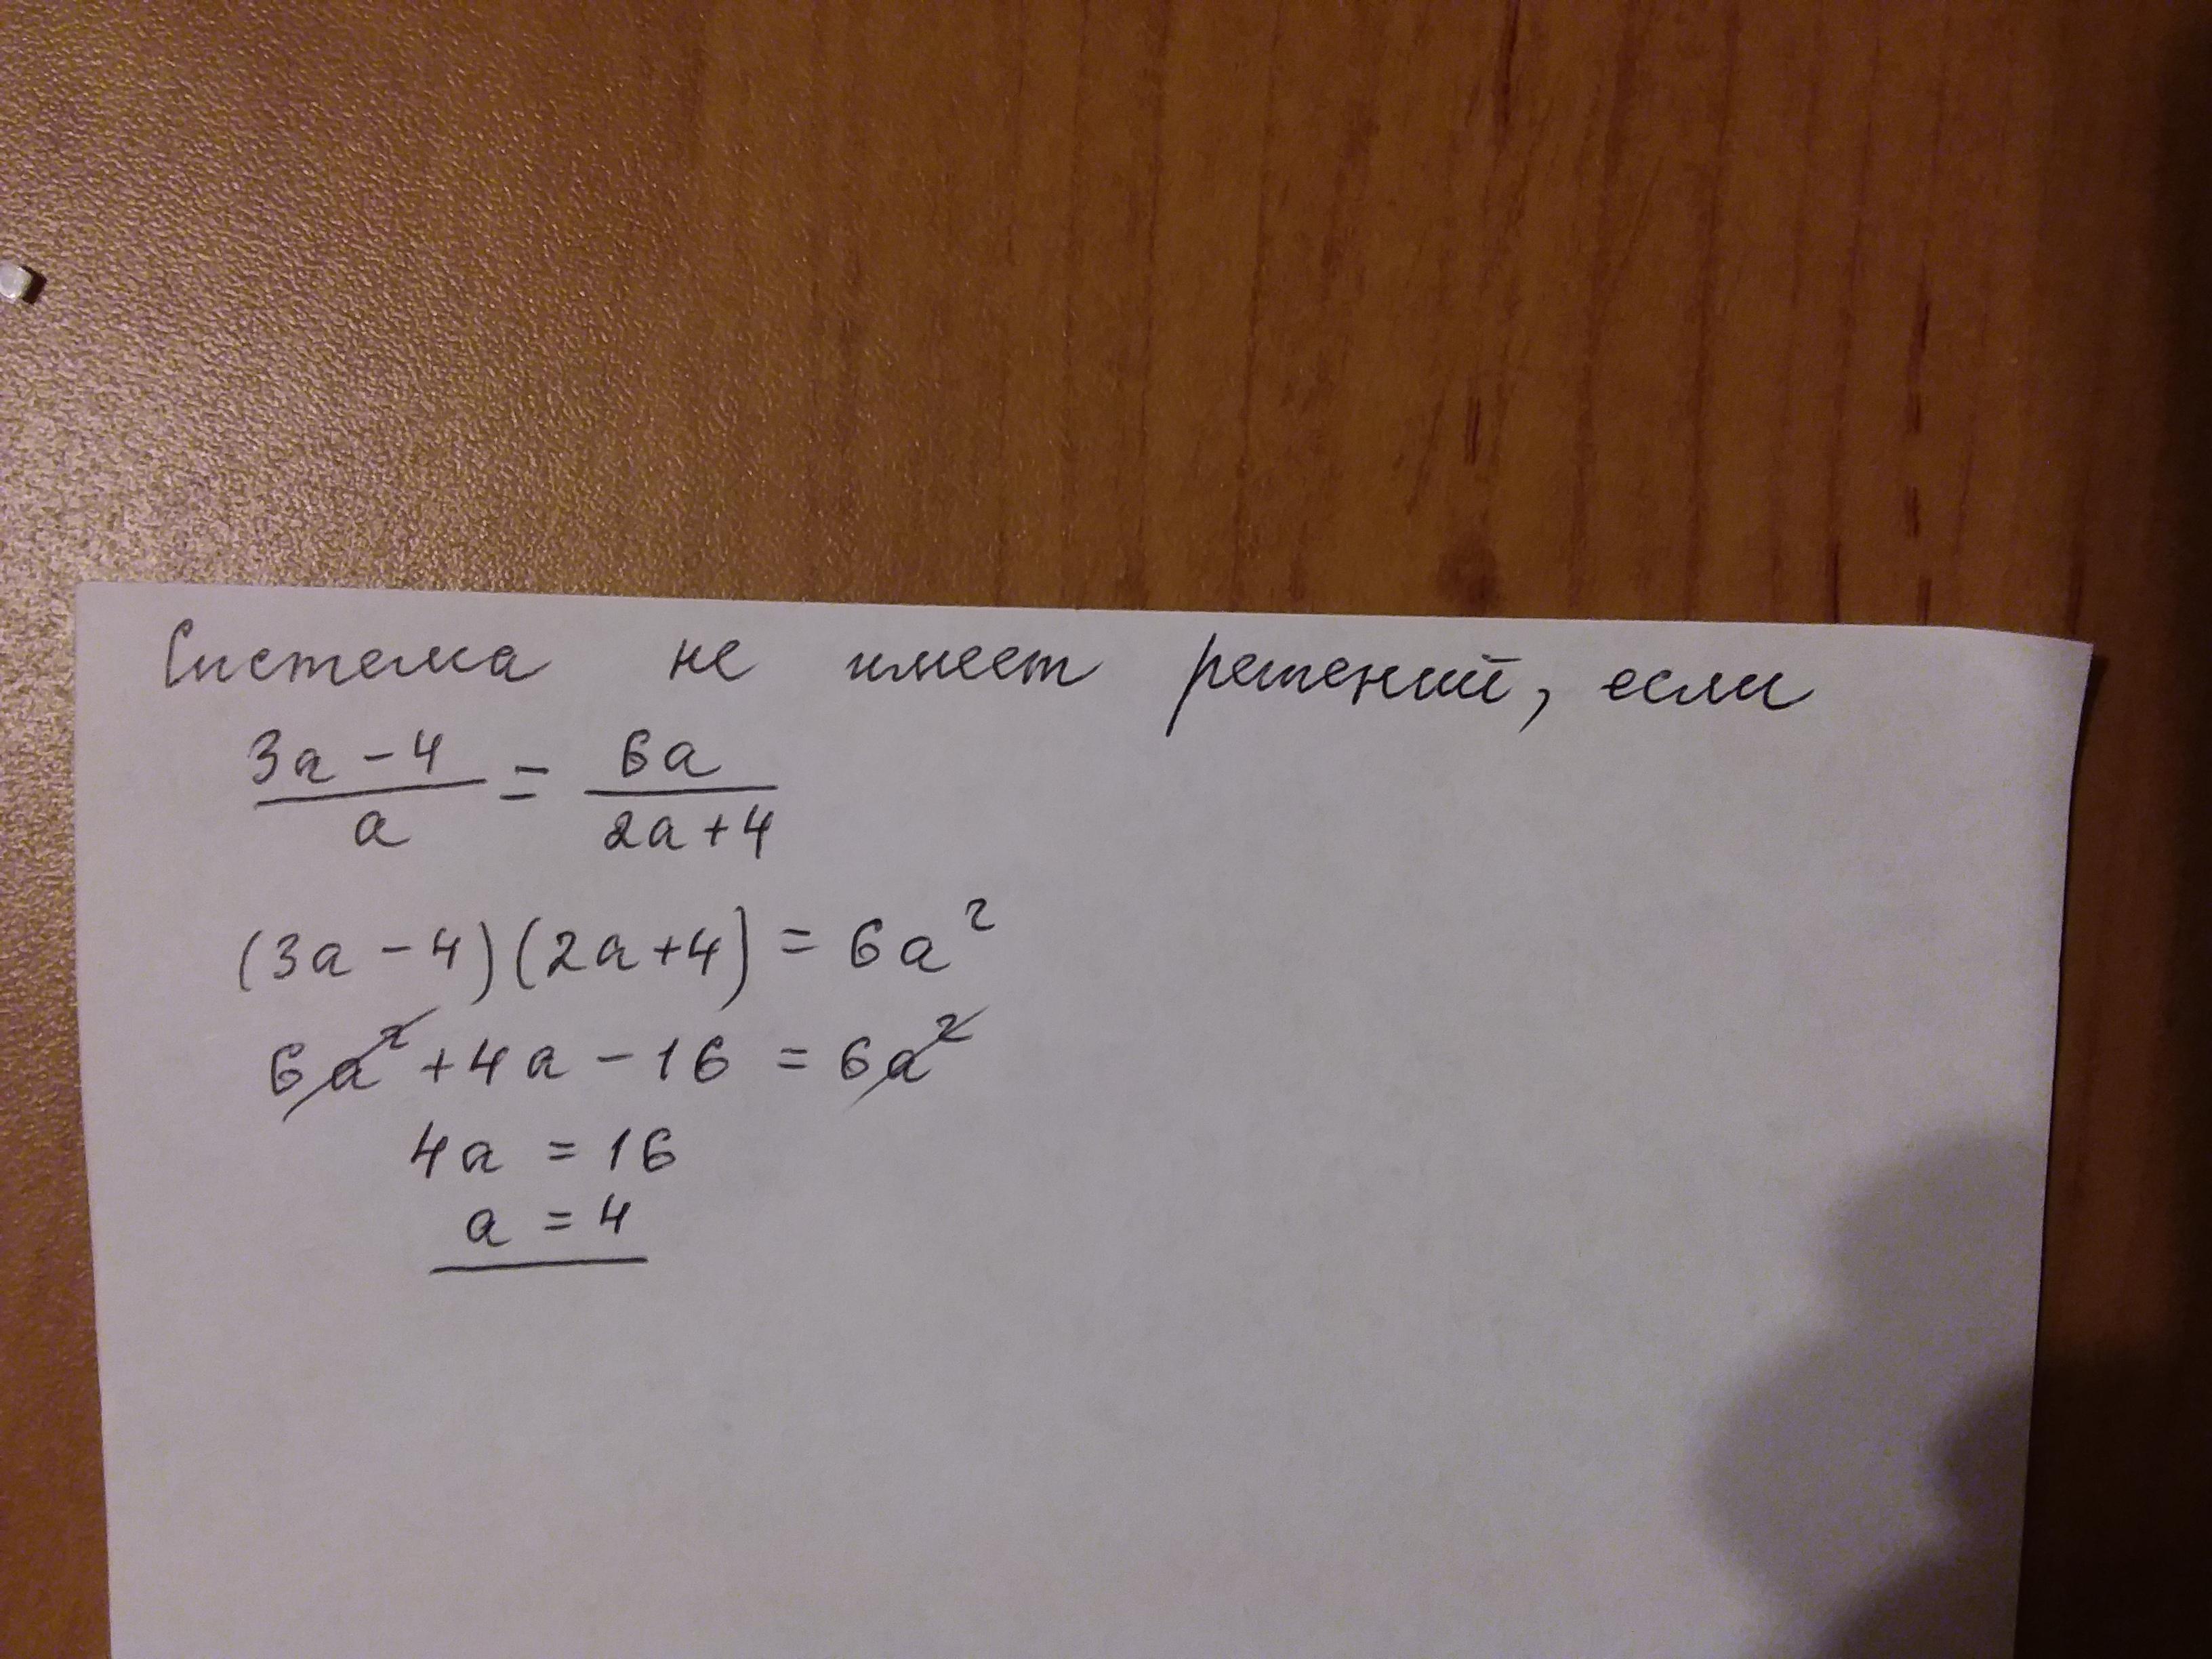 Система не имеет решений, если
3a - 4 / a = 6a / 2a + 4
(3a - 4)(2a + 4) = 6a²
6a² + 4a - 16 = 6a²
4a = 16
a = 4